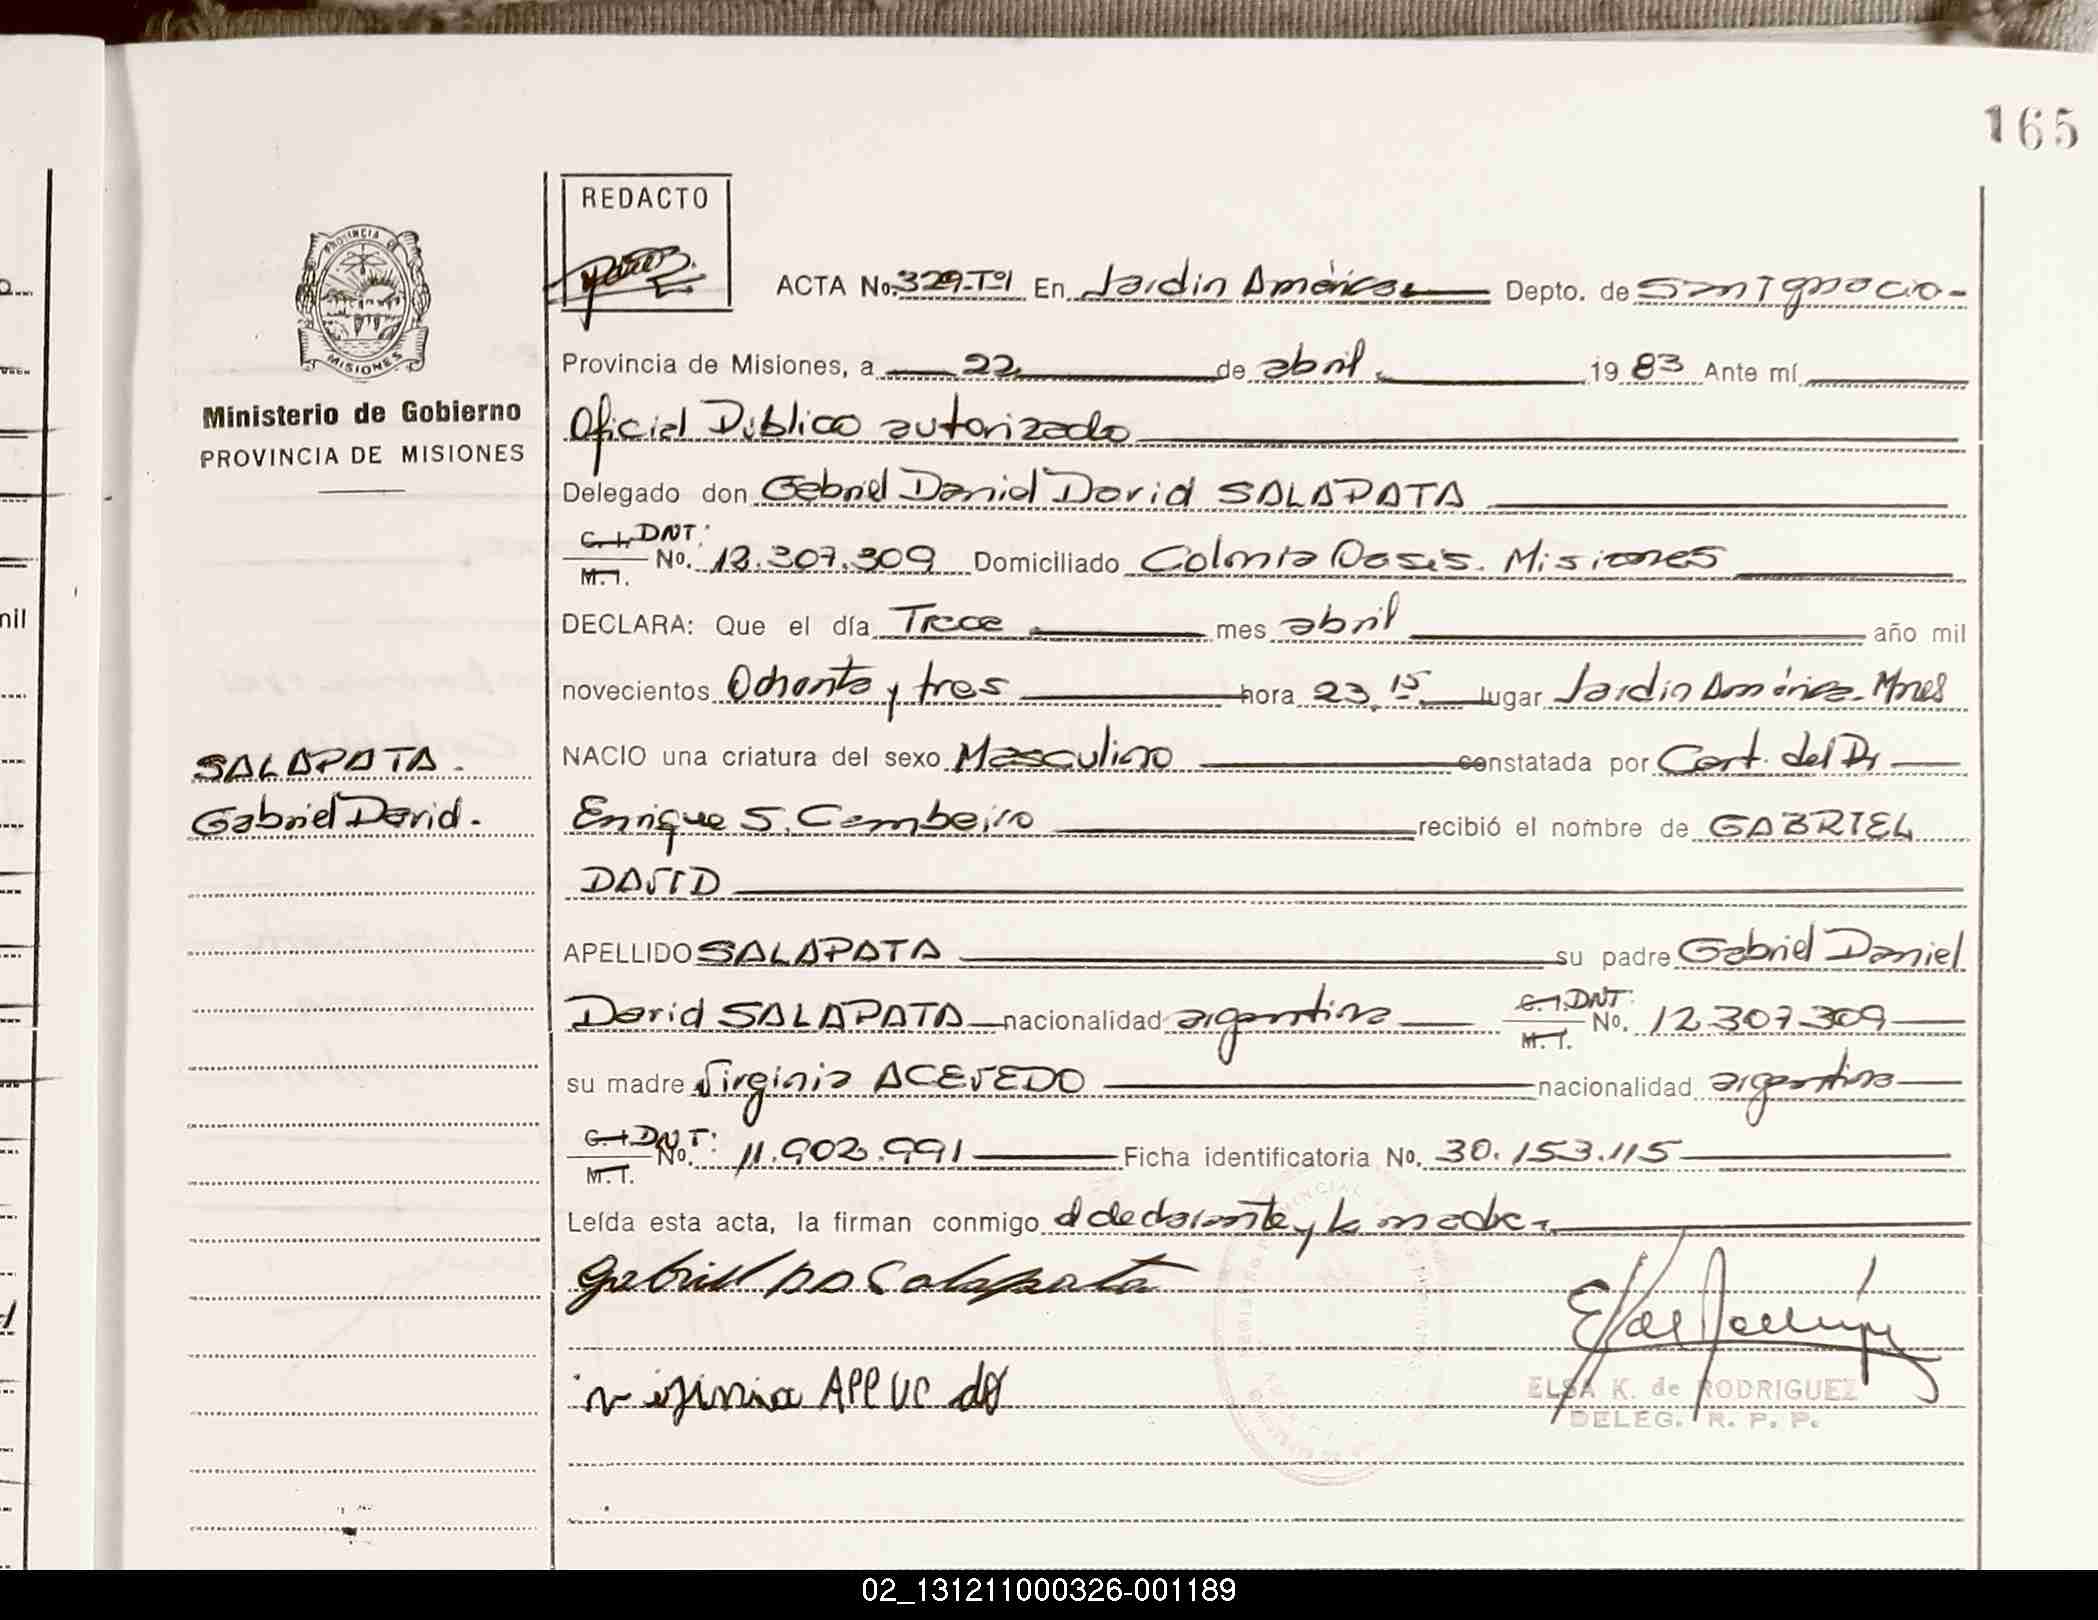 165
REDACTO
ACTA No. 329-Tº1 En Jardin América Depto. de San Ignacio-
PROVINCIA DE
MISIONES
Provincia de Misiones, a 22 de abril 1983 Ante mí
Ministerio de Gobierno
PROVINCIA DE MISIONES
Oficial Publico autorizado
Delegado don Gabriel Daniel David SALAPATA
C.I. DNI:
M.I. No. 12.307.309 Domiciliado Colonia Oasis. Misiones
DECLARA: Que el día Trece mes abril año mil
novecientos Ochenta y tres hora 23,15 lugar Jardin América-Mnes
NACIO una criatura del sexo Masculino constatada por Cert. del Dr
SALAPATA.
Gabriel David.
Enrique S. Cambeiro recibió el nombre de GABRIEL
DAVID
APELLIDO SALAPATA su padre Gabriel Daniel
David SALAPATA nacionalidad argentina C.I. DNI: M.I. No. 12.307.309
su madre Virginia ACEVEDO nacionalidad argentina
C.I. DNI: M.I. No. 11.902.991 Ficha identificatoria No. 30.153.115
Leída esta acta, la firman conmigo el declarante y la madre
Gabriel DD Salapata
ELSA K. de RODRIGUEZ
DELEG. R. P. P.
02_131211000326-001189